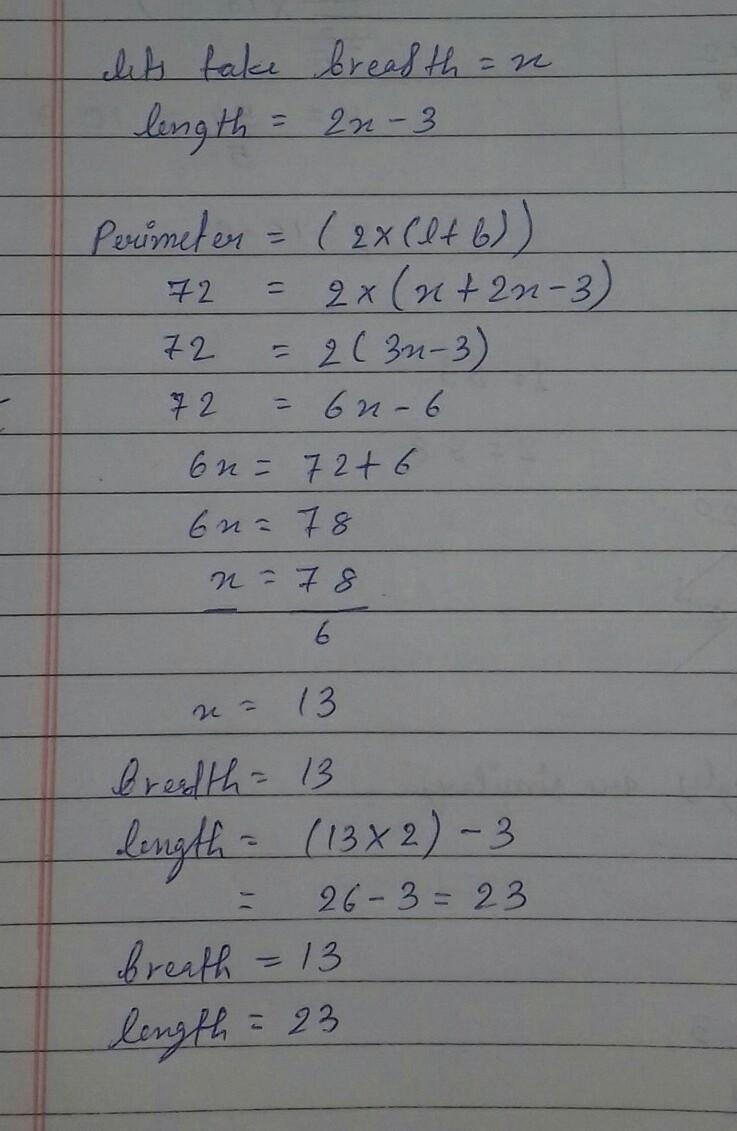 lets take breadth = x
length = 2x - 3
Perimeter = (2×(l+b))
72 = 2×(x+2x-3)
72 = 2(3x-3)
72 = 6x - 6
6x = 72+6
6x = 78
x = 78
6
x = 13
breadth = 13
length = (13×2) - 3
= 26 - 3 = 23
breath = 13
length = 23